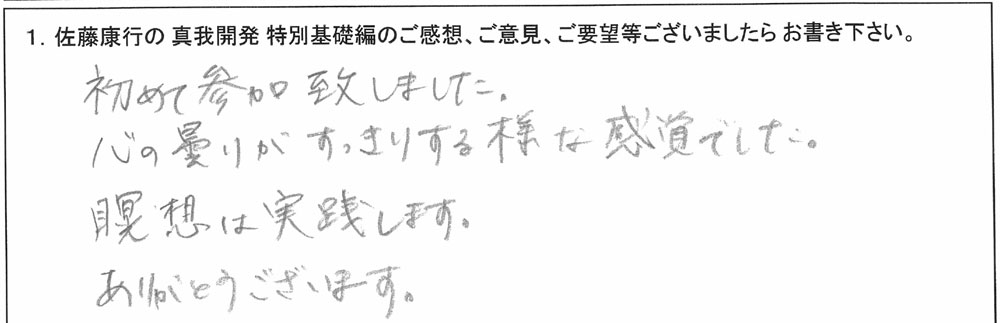 1. 佐藤康行の 真我開発 特別基礎編のご感想、ご意見、ご要望等ございましたら お書き下さい。
初めて参加致しました。
心の曇りがすっきりする様な感覚でした。
瞑想は実践します。
ありがとうございます。